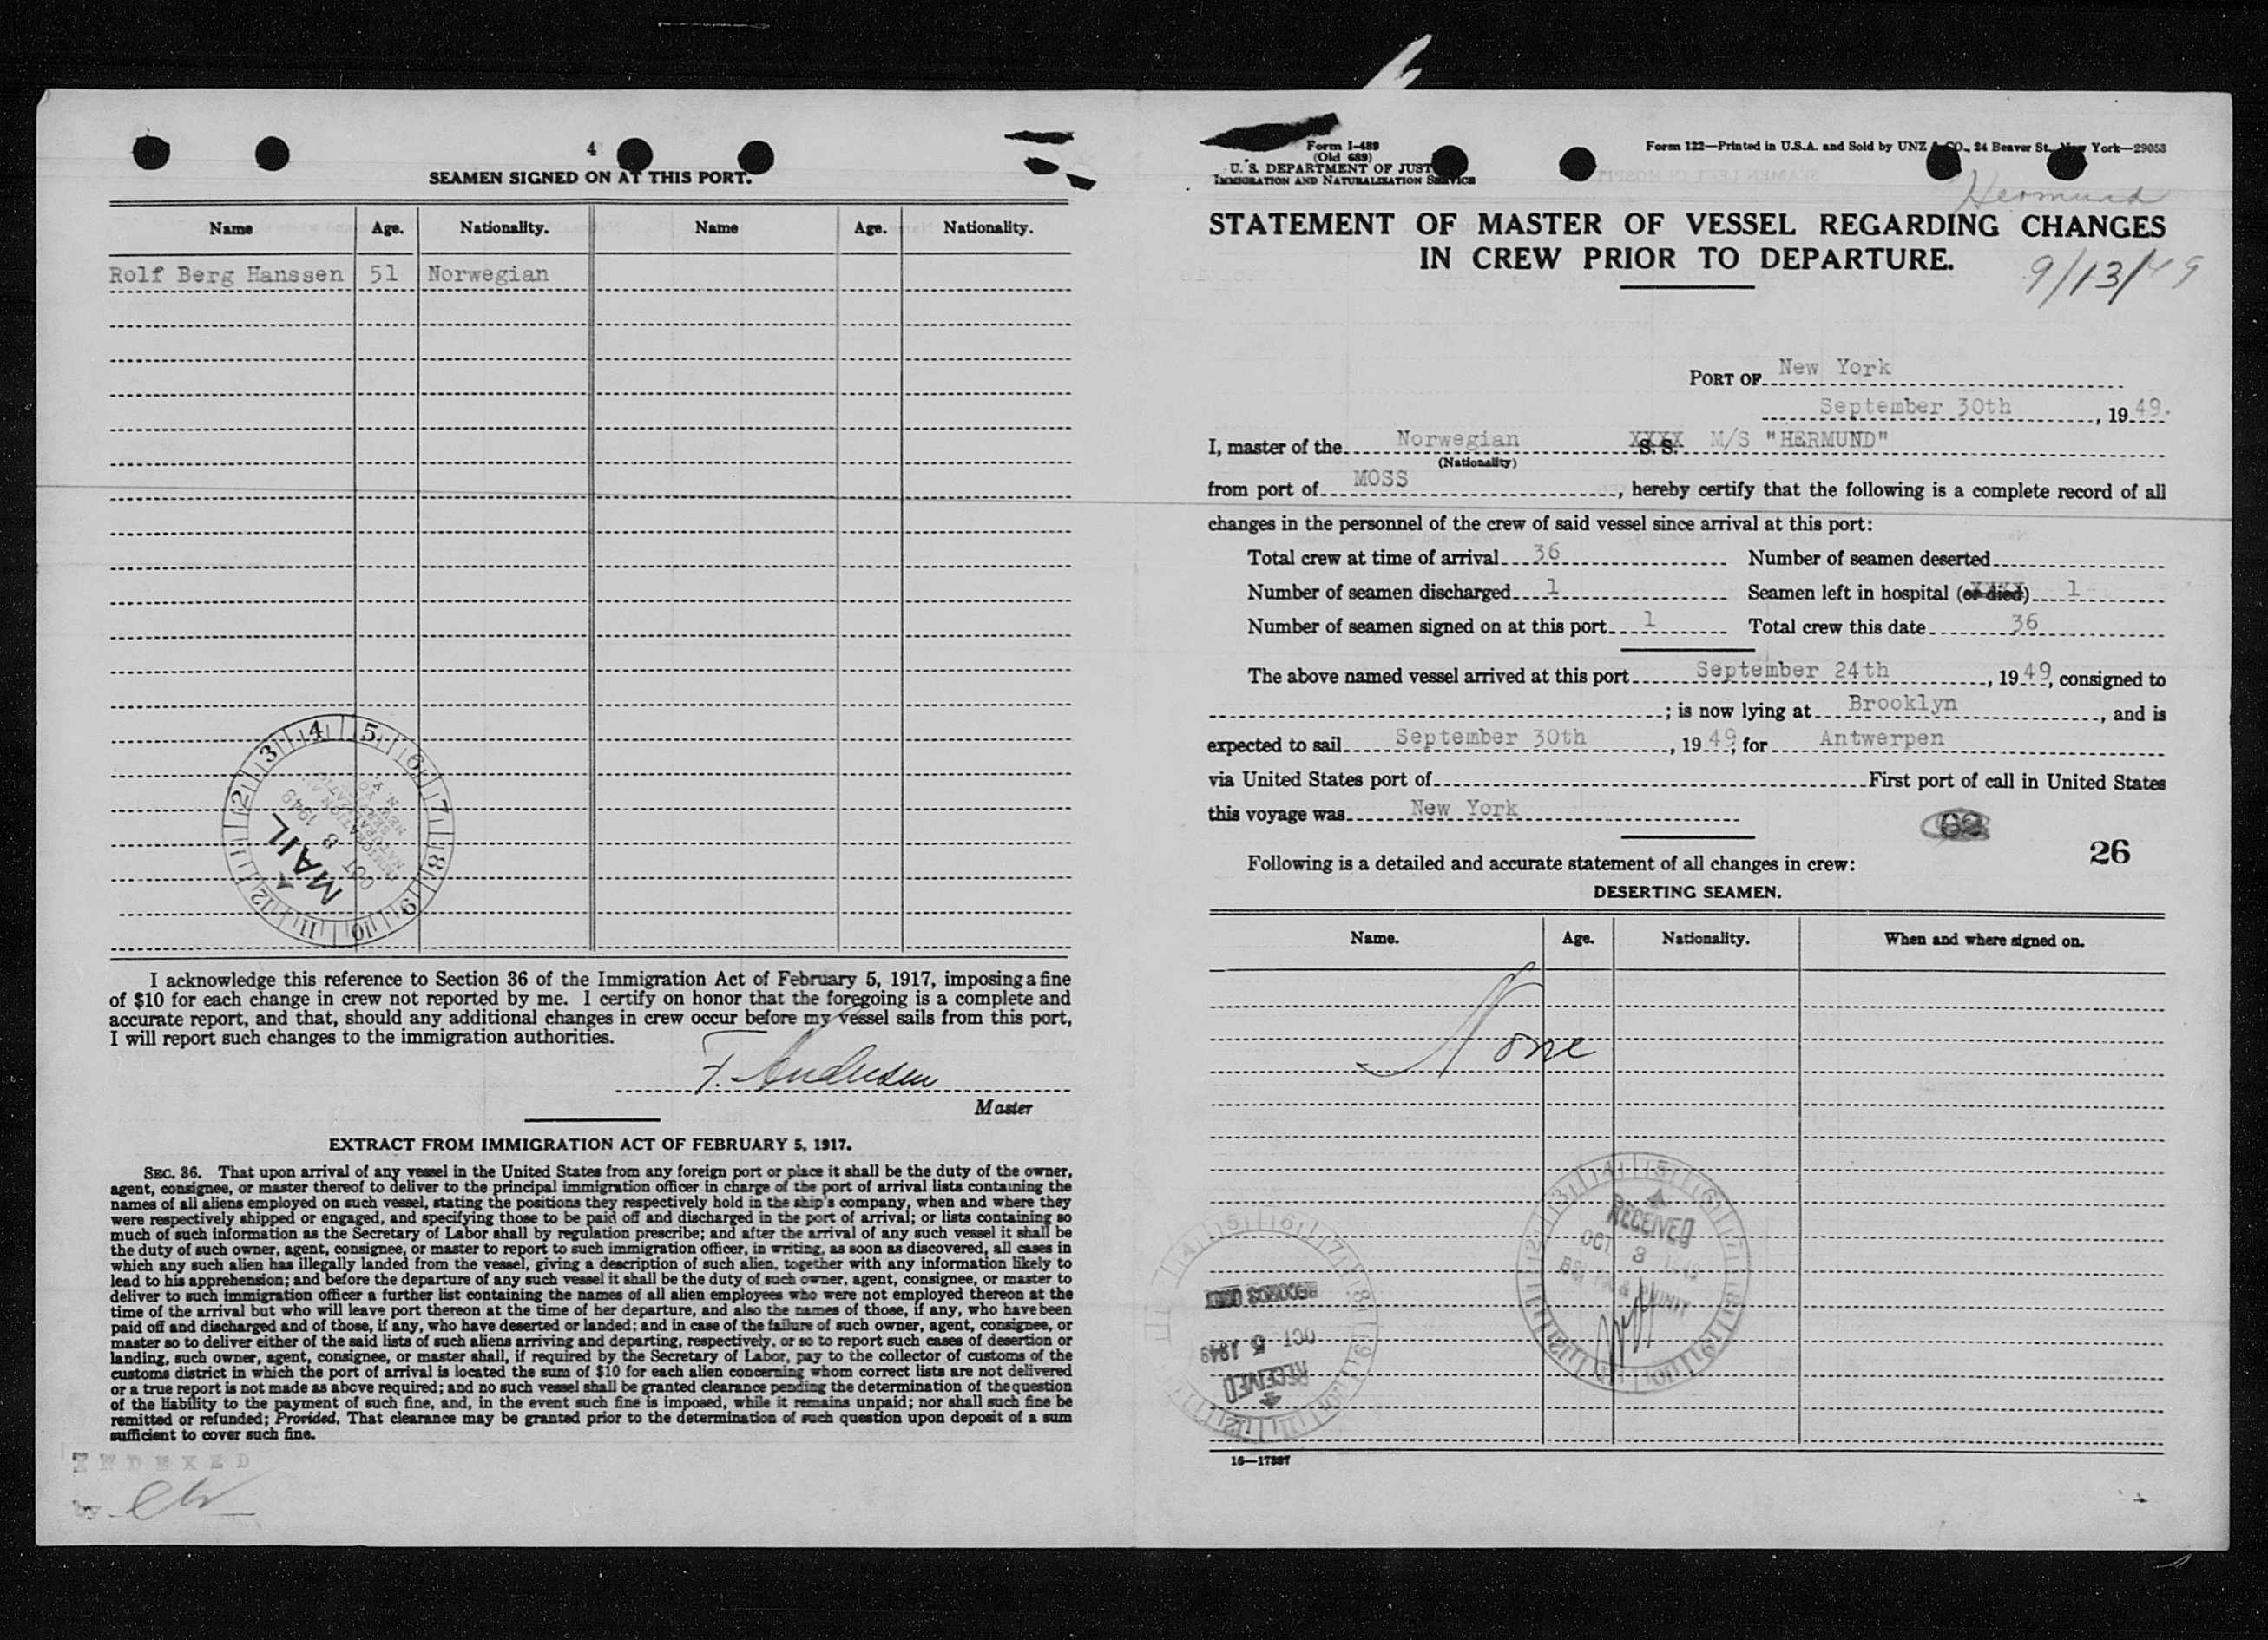 4
SEAMEN SIGNED ON AT THIS PORT.
Name Age. Nationality. Name Age. Nationality.
Rolf Berg Hanssen 51 Norwegian
4 5 6 7 8 9 10 11 12 1 2 3
MAIL
OCT 8 1949
I acknowledge this reference to Section 36 of the Immigration Act of February 5, 1917, imposing a fine
of $10 for each change in crew not reported by me. I certify on honor that the foregoing is a complete and
accurate report, and that, should any additional changes in crew occur before my vessel sails from this port,
I will report such changes to the immigration authorities.
F. Andersen
Master
EXTRACT FROM IMMIGRATION ACT OF FEBRUARY 5, 1917.
SEC. 36. That upon arrival of any vessel in the United States from any foreign port or place it shall be the duty of the owner,
agent, consignee, or master thereof to deliver to the principal immigration officer in charge of the port of arrival lists containing the
names of all aliens employed on such vessel, stating the positions they respectively hold in the ship's company, when and where they
were respectively shipped or engaged, and specifying those to be paid off and discharged in the port of arrival; or lists containing so
much of such information as the Secretary of Labor shall by regulation prescribe; and after the arrival of any such vessel it shall be
the duty of such owner, agent, consignee, or master to report to such immigration officer, in writing, as soon as discovered, all cases in
which any such alien has illegally landed from the vessel, giving a description of such alien, together with any information likely to
lead to his apprehension; and before the departure of any such vessel it shall be the duty of such owner, agent, consignee, or master to
deliver to such immigration officer a further list containing the names of all alien employees who were not employed thereon at the
time of the arrival but who will leave port thereon at the time of her departure, and also the names of those, if any, who have been
paid off and discharged and of those, if any, who have deserted or landed; and in case of the failure of such owner, agent, consignee, or
master so to deliver either of the said lists of such aliens arriving and departing, respectively, or so to report such cases of desertion or
landing, such owner, agent, consignee, or master shall, if required by the Secretary of Labor, pay to the collector of customs of the
customs district in which the port of arrival is located the sum of $10 for each alien concerning whom correct lists are not delivered
or a true report is not made as above required; and no such vessel shall be granted clearance pending the determination of the question
of the liability to the payment of such fine, and, in the event such fine is imposed, while it remains unpaid; nor shall such fine be
remitted or refunded; Provided, That clearance may be granted prior to the determination of such question upon deposit of a sum
sufficient to cover such fine.
INDEXED
Form I-489
(Old 689)
U. S. DEPARTMENT OF JUST
IMMIGRATION AND NATURALIZATION SERVICE
Form 122—Printed in U.S.A. and Sold by UNZ & CO., 24 Beaver St., New York—29053
Hermund
STATEMENT OF MASTER OF VESSEL REGARDING CHANGES
IN CREW PRIOR TO DEPARTURE.
9/13/49
PORT OF New York
September 30th, 1949.
I, master of the Norwegian XXXX S. S. M/S "HERMUND"
(Nationality)
from port of MOSS, hereby certify that the following is a complete record of all
changes in the personnel of the crew of said vessel since arrival at this port:
Total crew at time of arrival 36 Number of seamen deserted
Number of seamen discharged 1 Seamen left in hospital (or died) 1
Number of seamen signed on at this port 1 Total crew this date 36
The above named vessel arrived at this port September 24th, 1949, consigned to
; is now lying at Brooklyn, and is
expected to sail September 30th, 1949, for Antwerpen
via United States port of First port of call in United States
this voyage was New York
26
Following is a detailed and accurate statement of all changes in crew:
DESERTING SEAMEN.
Name. Age. Nationality. When and where signed on.
None
RECEIVED
OCT 8 1949
RECORDS UNIT
OCT 5 1949
RECEIVED
16—17387